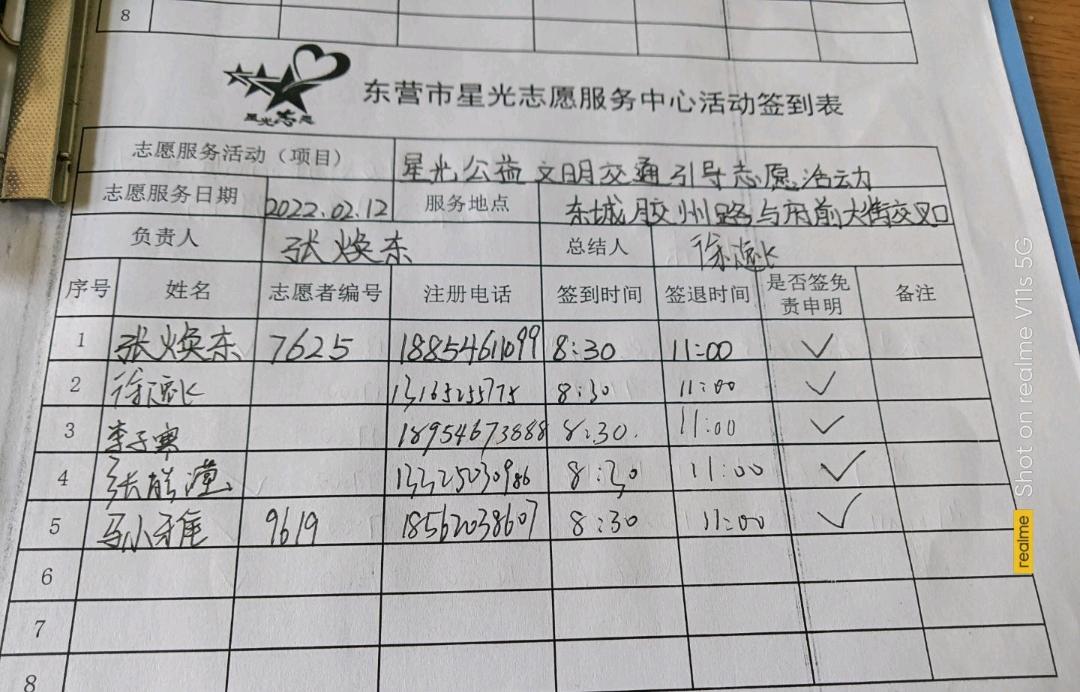 8
星光志愿
东营市星光志愿服务中心活动签到表
志愿服务活动（项目） 星光公益 文明交通引导志愿活动
志愿服务日期 2022.02.12 服务地点 东城胶州路与府前大街交叉口
负责人 张焕东 总结人
序号 姓名 志愿者编号 注册电话 签到时间 签退时间 是否签免责申明 备注
1 张焕东 7625 18854611099 8:30 11:00 ✓
2 13165255775 8:30 11:00 ✓
3 18954673688 8:30. 11:00 ✓
4 13325030986 8:30 11:00 ✓
5 马小雅 9619 18562038607 8:30 11:00 ✓
6
7
8
Shot on realme V11s 5G
realme